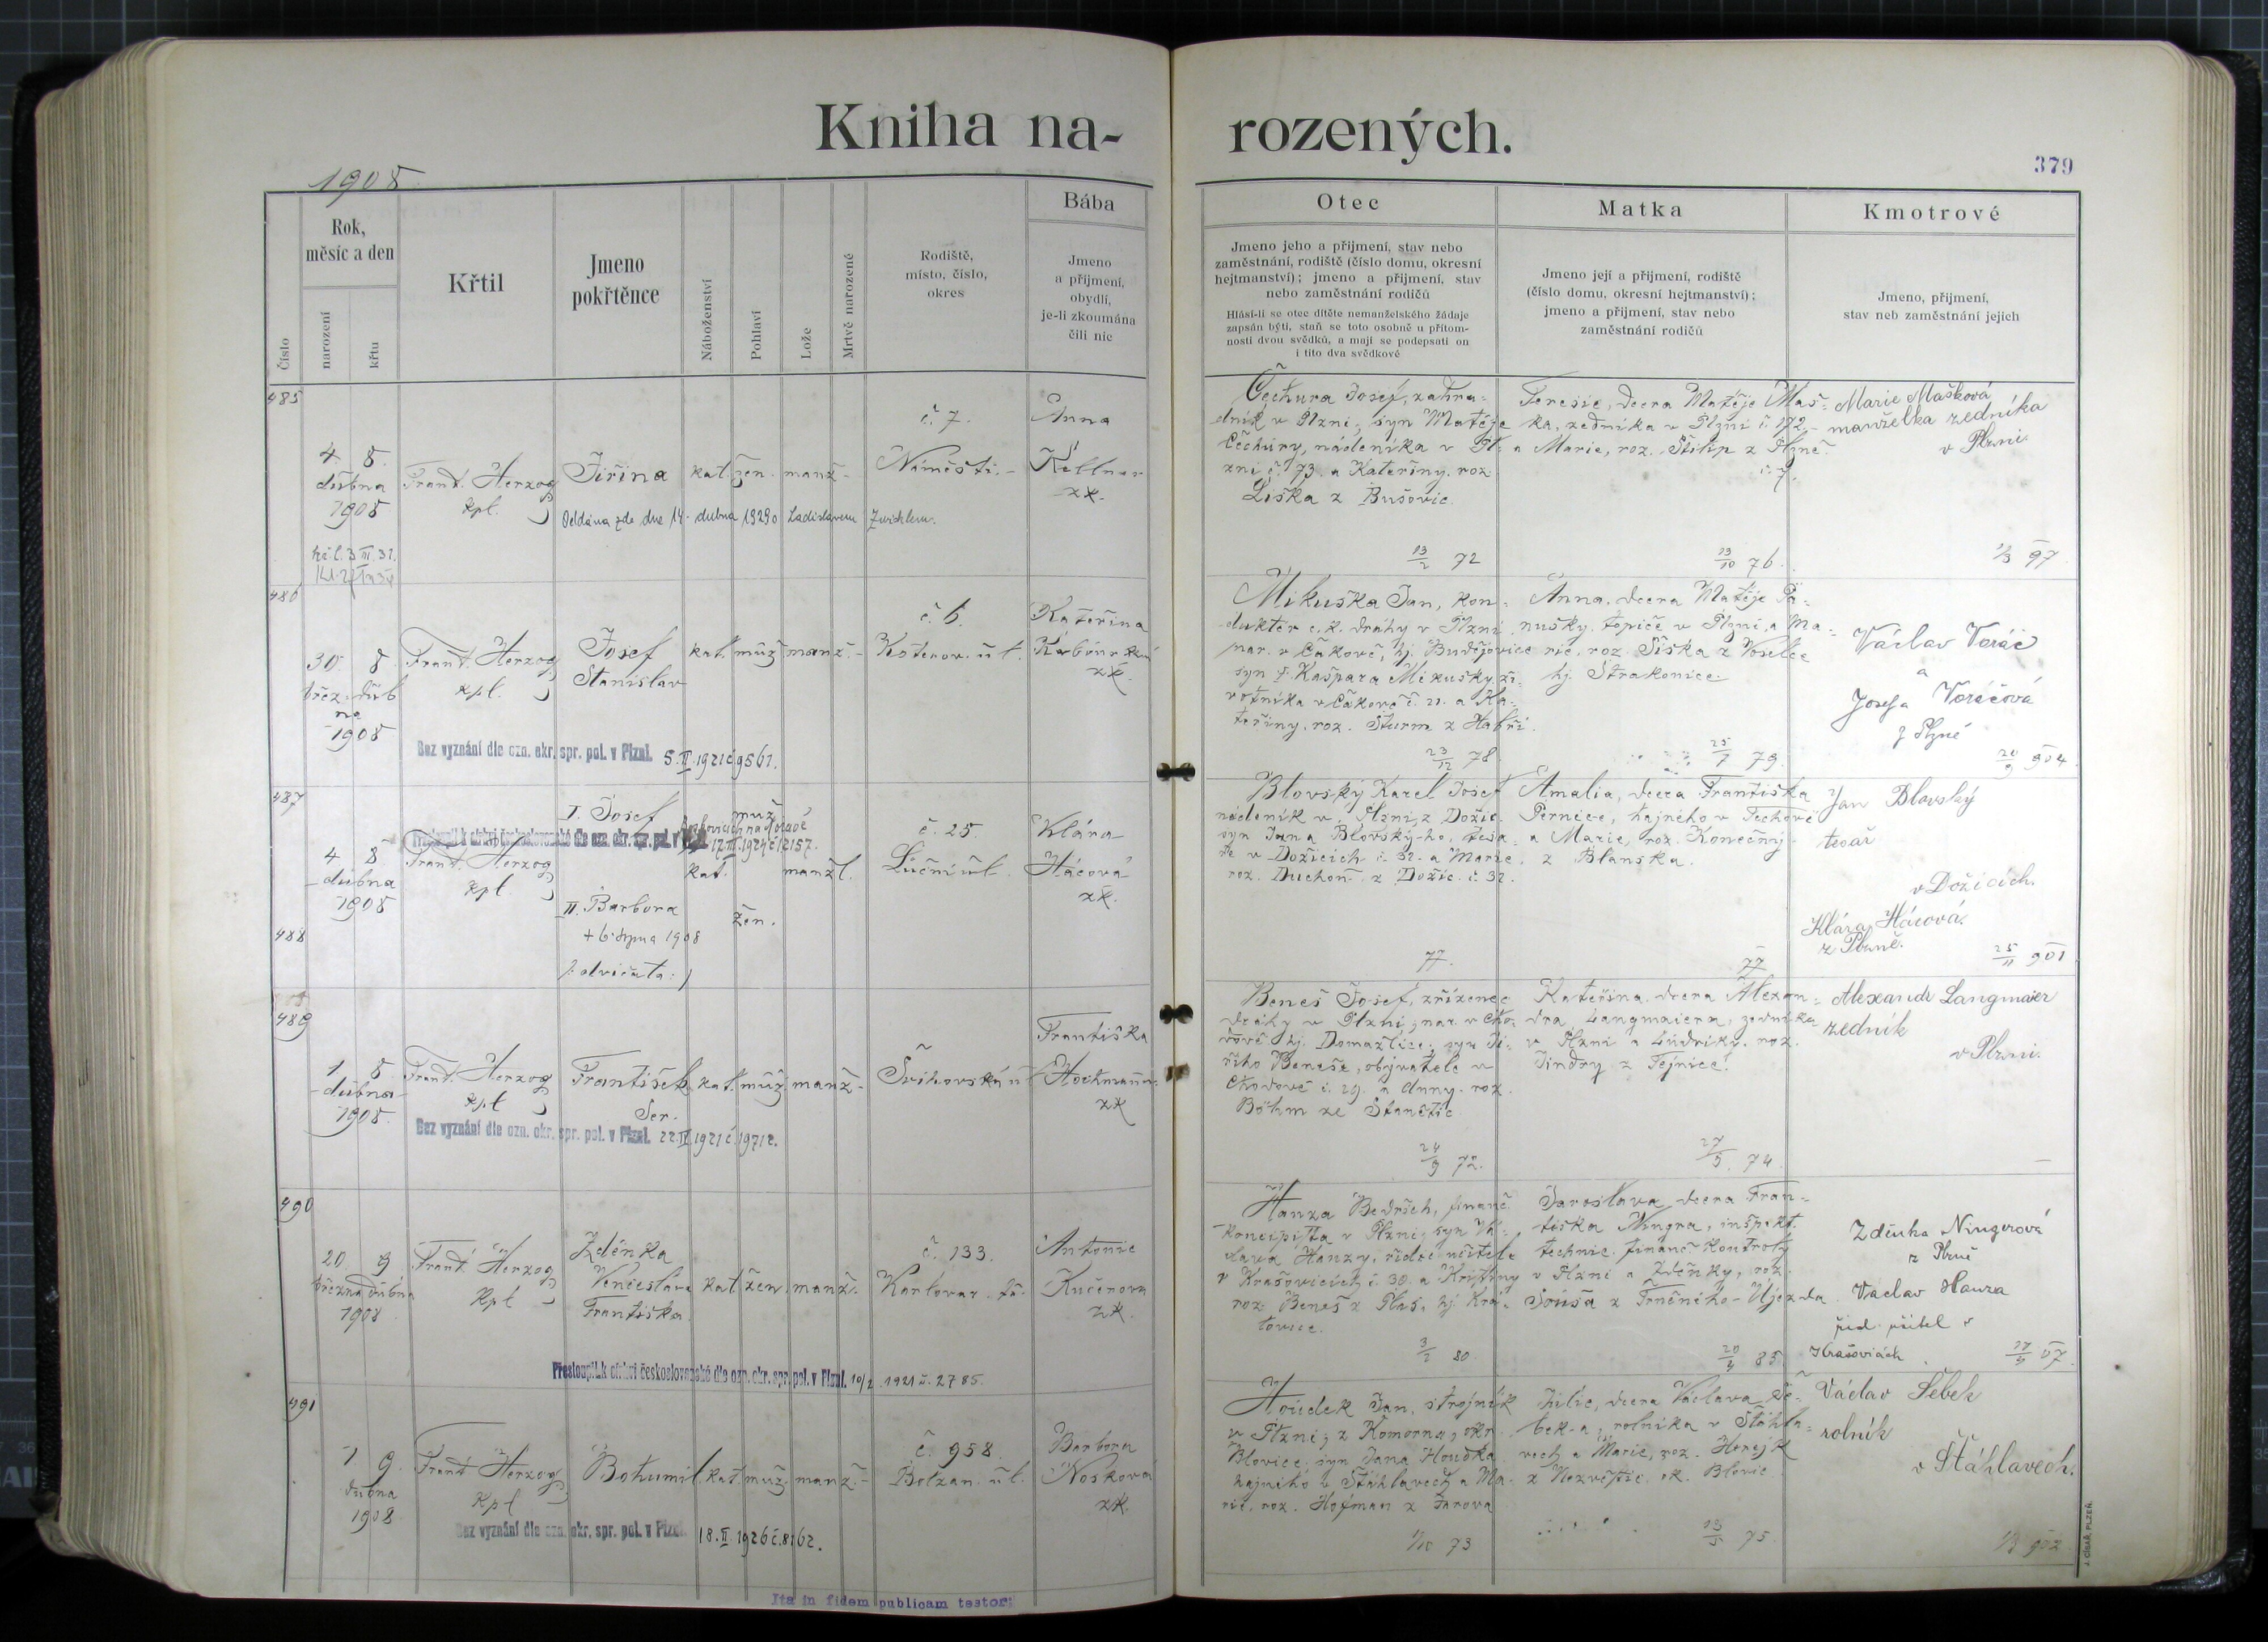 Kniha na-
rozených.
379
1908
Číslo
Rok,
měsíc a den
narození
křtu
Křtil
Jmeno
pokřtěnce
Náboženství
Pohlaví
Lože
Mrtvě narozené
Rodiště,
místo, číslo,
okres
Bába
Jmeno
a příjmení,
obydlí,
je-li zkoumána
čili nic
Otec
Jmeno jeho a příjmení, stav nebo
zaměstnání, rodiště (číslo domu, okresní
hejtmanství); jmeno a příjmení, stav
nebo zaměstnání rodičů
Hlásí-li se otec dítěte nemanželského žádaje
zapsán býti, staň se toto osobně u přítom-
nosti dvou svědků, a mají se podepsati on
i tito dva svědkové
Matka
Jmeno její a příjmení, rodiště
(číslo domu, okresní hejtmanství);
jmeno a příjmení, stav nebo
zaměstnání rodičů
Kmotrové
Jmeno, příjmení,
stav neb zaměstnání jejich
485
4 8.
dubna
1908
Frant. Herzog
kpl.
Jiřina
kat. žen. manž.
č. 7.
Náměstí.
Anna
Kellner
zk.
Oddána zde dne 14. dubna 1929 Ladislavem
Čechura Josef, zahra-
dník v Plzni, syn Matěje
Čechury, nádeníka v Pl-
zni č. 73. a Kateřiny. roz.
Liška z Bušovic.
13/2 72
Teresie, dcera Matěje Maš-
ka, zedníka v Plzni č. 172,
a Marie, roz. Filip z Plzně
13/10 76.
Marie Mašková
manželka zedníka
v Plzni.
1/3 97
486
30. 8.
břez. dub
na
1908
Frant. Herzog
kpl.
Josef
Stanislav
kat. muž. manž.
č. 6.
Koterov. ul.
Kateřina
zk.
Bez vyznání dle ozn. okr. spr. pol. v Plzni. 5.II.1921 č. 9561.
Mikuška Jan, kon-
duktér c.k. dráhy v Plzni
nar. v Čakově, hj. Budějovice
syn † Kašpara Mikušky ži-
votníka v Čakově č. 21. a Ka-
teřiny, roz. Sturm z Habří.
23/12 78.
Anna, dcera Matěje Pa-
nušky, topiče v Plzni, a Ma-
rie, roz. Šiška z
hj. Strakonice.
25/7 79.
Václav Voráč
a
Josefa Voráčová
z Plzně
20/9 904.
487
4 8
dubna
1908
Frant. Herzog
kpl.
I. Josef
muž
kat. manžl.
Přestoupil k církvi československé dle ozn. okr. spr. pol. v
12.III.1924 č. 12157.
č. 25.
Luční ul.
Klára
Hácová
zk.
II. Barbora
žen.
+ 6. srpna 1908
/: dvojčata :/
488
Blovský Karel Josef
nádeník v Plzni, z Dožic.
syn Jana Blovský-ho, tesa-
ře v Dožicích č. 32. a Marie,
roz. Duchoň z Dožic. č. 32.
77.
Amalia, dcera Františka
Pernice, hajného v Těchově
a Marie, roz. Konečný
z Blanska.
77
Jan Blovský
tesař
v Dožicích.
Klára Hácová.
z Plzně.
25/11 901
489
1 8
dubna
1908
Frant. Herzog
kpl
František
Ser.
kat. muž. manž.
Švihovská u
Františka
zk
Bez vyznání dle ozn. okr. spr. pol. v Plzni. 22.II.1921 č. 19712.
Beneš Josef, zřízenec
dráhy v Plzni, nar. v Cho-
dově hj. Domažlice; syn Ji-
řího Beneše, obyvatele v
Chodově č. 29. a Anny. roz.
Böhm ze Stanětic
24/9 72.
Kateřina, dcera Alexan-
dra Langmaiera, zedníka
v Plzni a Ludviky. roz.
Jindry z Tejnice.
27/5. 74.
Alexandr Langmaier
zedník
v Plzni.
490
20 9
března dubna
1908
Frant. Herzog
Kpl
Zdeňka
Venčeslava
Františka
kat. žen. manž.
č. 133.
Karlovar. tř.
Antonie
Kučerova
zk.
Přestoupil k církvi československé dle ozn. okr. spr. pol. v Plzni. 10/2 1921 č. 2785.
Hanza Bedřich, finanč.
koncipista v Plzni, syn Vá-
clava Hanzy, řídíc. učitele
v Krašovicích č. 30. a Kristiny
roz. Beneš z Plas, hj. Kra-
lovice.
3/2 80.
Jaroslava, dcera Fran-
tiška Ningra, inspekt.
technic. finanč. kontroly
v Plzni a Zdeňky, roz.
Souša z Trněného-Újezda
20/4 85.
Zdeňka Ningrová
z Plzně
Václav Hanza
říd. učitel v
Krašovicích
491
1 9.
dubna
1908
Frant Herzog
Kpl
Bohumil
kat. muž. manž.
č. 958.
Bolzan. ul.
Barbora
Nosková
zk.
Bez vyznání dle ozn. okr. spr. pol. v Plzni. 18.II.1926 č. 8162.
Houdek Jan, strojník
v Plzni; z Komorna, okr.
Blovice, syn Jana Houdka
hajného v Štáhlavech a Ma-
rie, roz. Hofman z Žarova
1/10 73
Julie, dcera Václava Še-
bek-a, rolníka v Štáhla-
vech a Marie, roz. Horejk
z Nezvěstic, ok. Blovic.
75
Václav Šebek
rolník
v Štáhlavech.
1/3 902
J. CÍSAŘ, PLZEŇ.
Ita in fidem publicam testor: